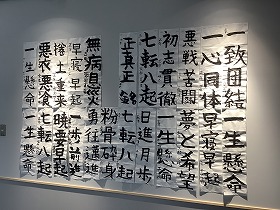 一致団結一生懸命
一心同体早寝早起
悪戦苦闘夢と希望
初志貫徹
七転八起日進月歩
正真正銘
七転八起
粉骨砕身
無病息災勇往邁進
早寝早起一歩前進
捲土重来
悪衣悪食七転八起
一生懸命一生懸命